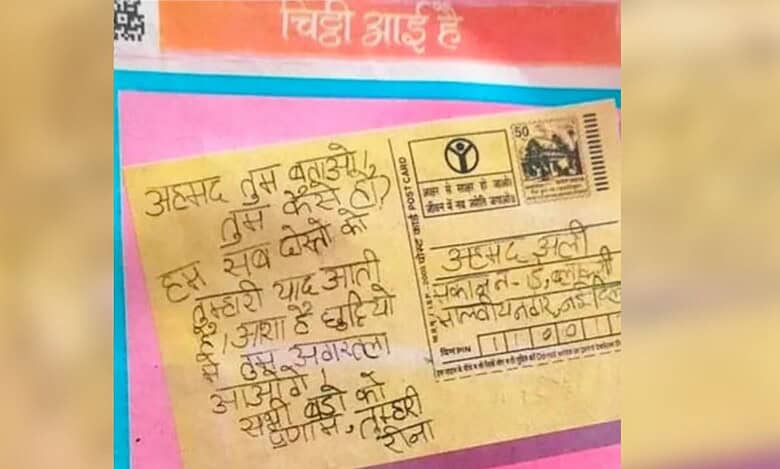 चिट्ठी आई है
अहमद तुम बताओ!
तुम कैसे हो?
हम सब दोस्तो को
तुम्हारी याद आती
है। आशा है छुट्टियो
मे तुम अगरतला
आओगे।
सभी बड़ो को
प्रणाम, तुम्हारी
रीना
POST CARD
पोस्ट कार्ड
50
अक्षर से साक्षर हो जाओ।
जीवन में नव ज्योति जगाओ।
अहमद अली
मकान न-
मालवीयनगर,
पिन PIN
1 1 0 0 1